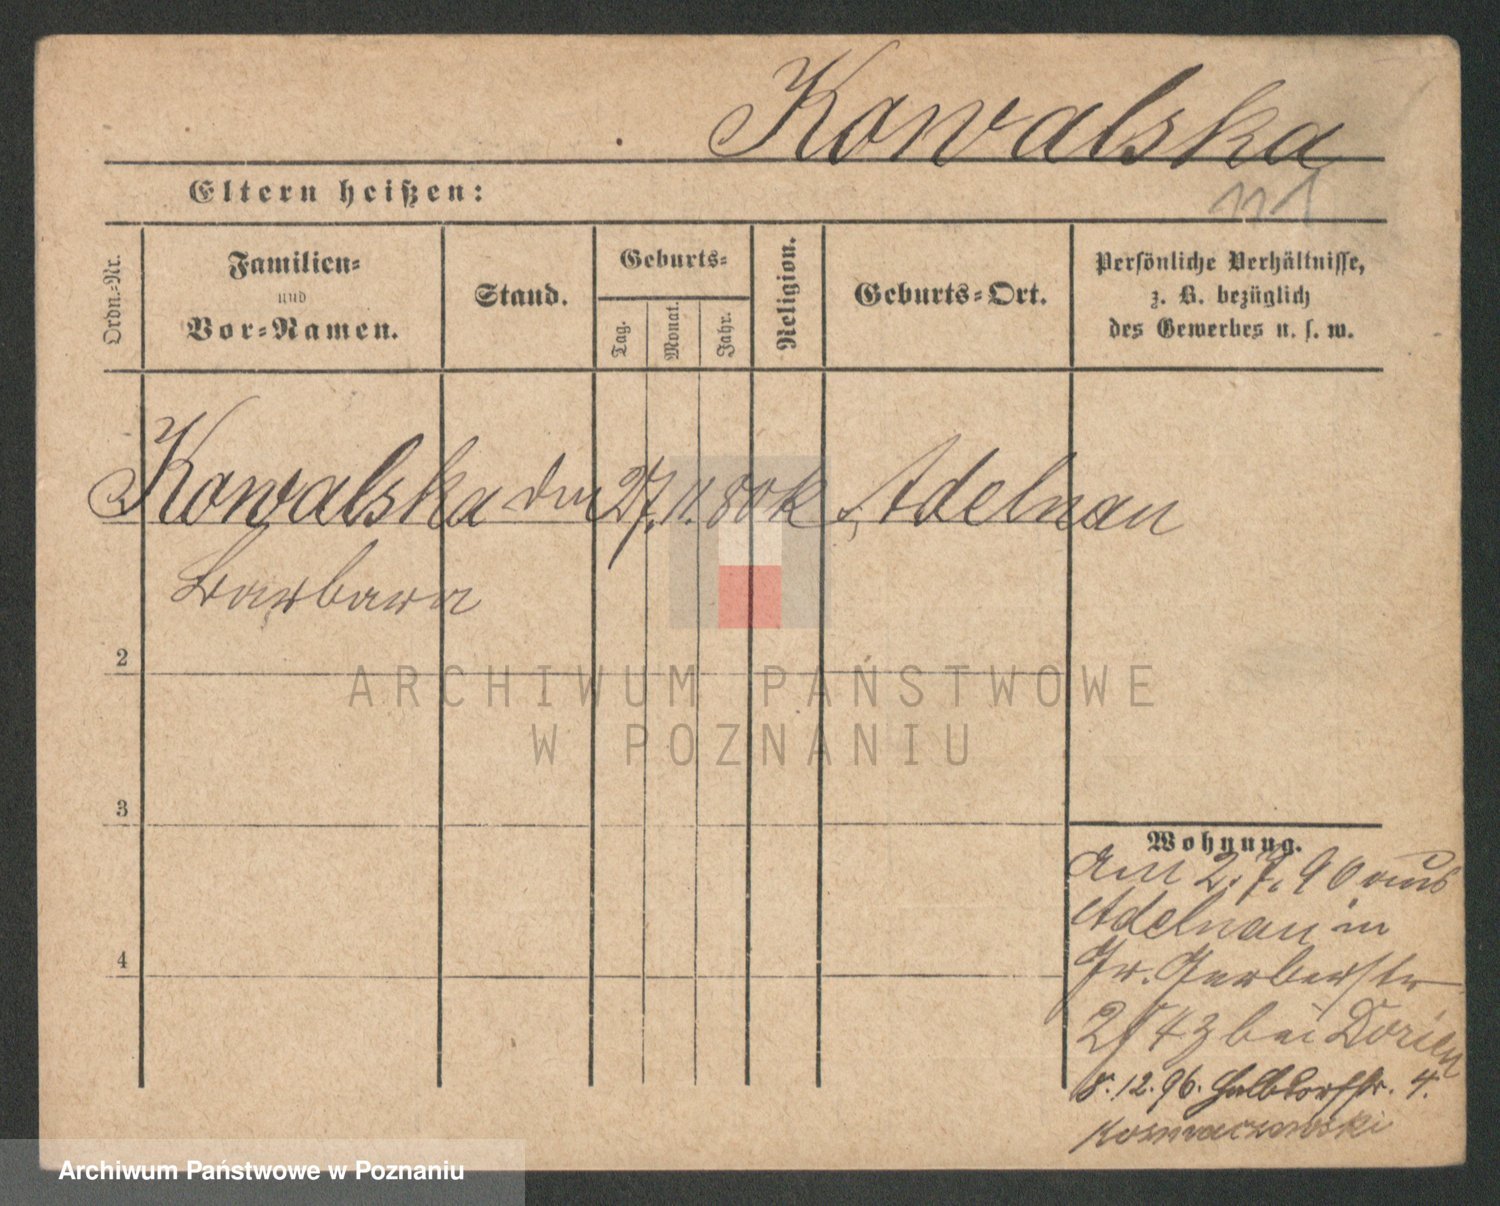 Kowalska
Eltern heißen:
111
Ordn.-Nr.
Familien-
und
Vor-Namen.
Stand.
Geburts-
Tag.
Monat.
Jahr.
Religion.
Geburts-Ort.
Persönliche Verhältnisse,
z. B. bezüglich
des Gewerbes u. s. w.
Kowalska 27. 11. 80 k Adelnau
Barbara
2
3
4
Wohnung.
Am 2. 7. 90 aus
Adelnau in
Gr. Gerberstr
bei
8. 12. 96. Halbdorfstr. 4.
ARCHIWUM PAŃSTWOWE
W POZNANIU
Archiwum Państwowe w Poznaniu